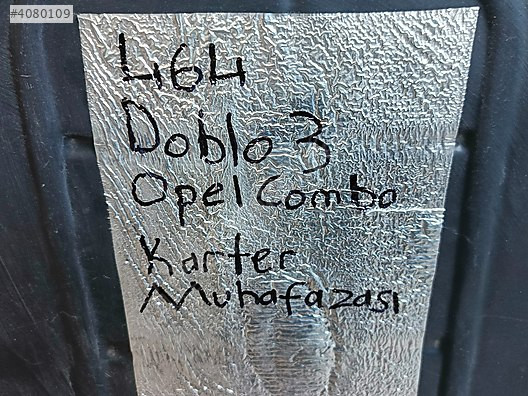 #4080109
464
Doblo 3
Opel Combo
Karter
Muhafazası